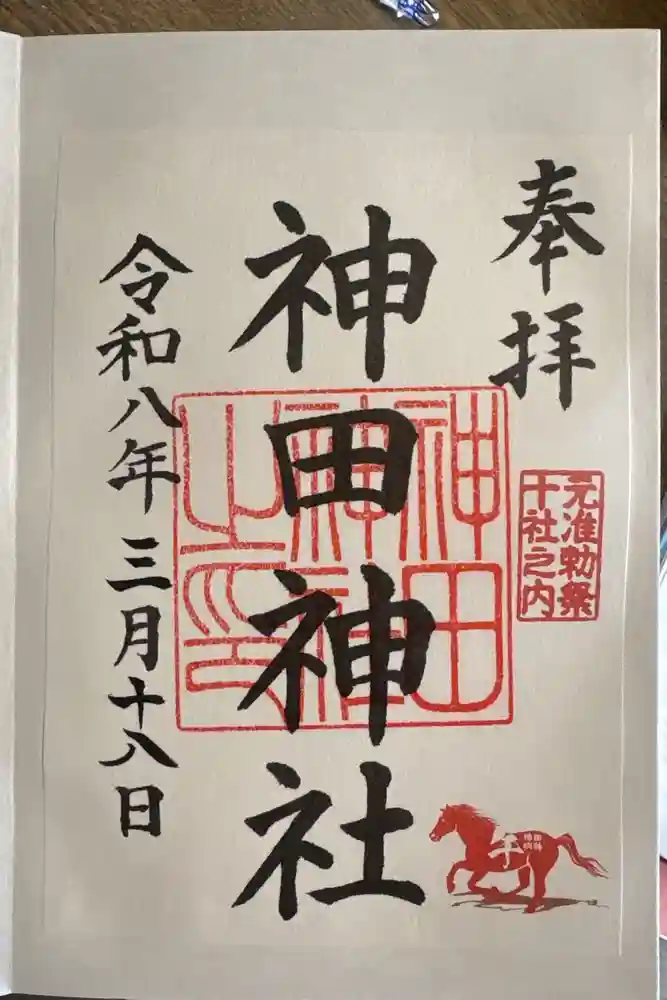 奉拝
元准勅祭
十社之内
神田神社
神田
神社
之印
午
令和八年三月十八日